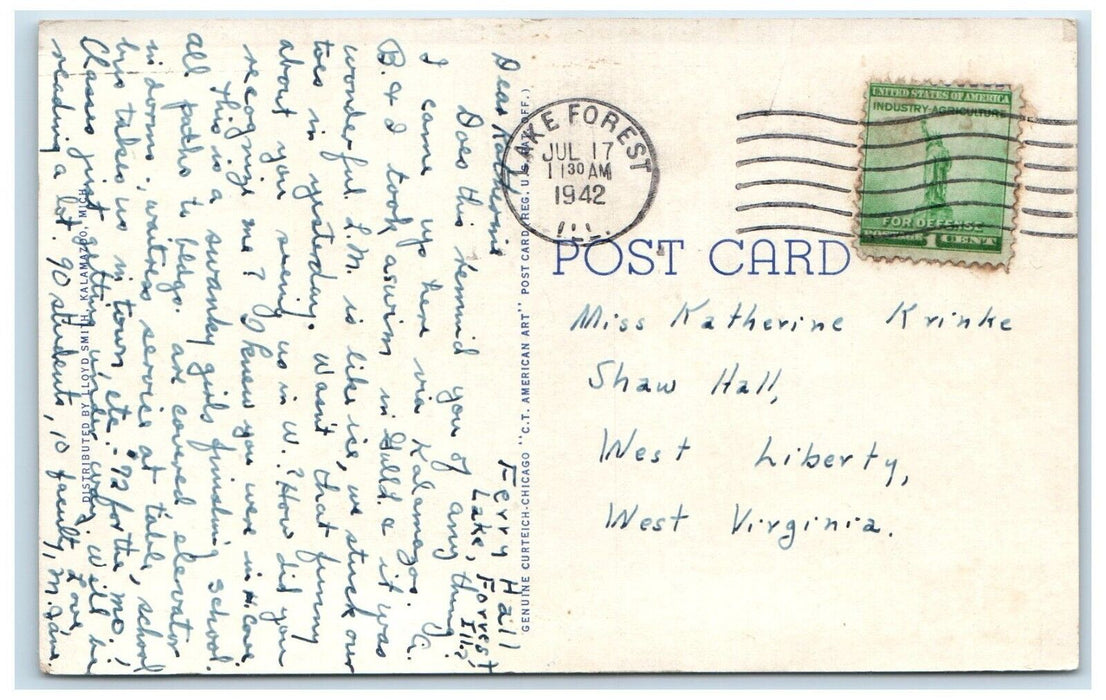 Ferry Hall
Lake Forest,
Ill.
Dear Katherine
Does this remind you of any thing?
I came up here via Kalamazoo. G.
B. & I took a swim in Gull L. & it was
wonderful. L.M. is like ice, we stuck our
toes in yesterday. Wasn't that funny
about you seeing us in W.? How did you
recognize me? I knew you were in H.
This is a swanky girls finishing school.
all paths to bldgs. are covered, elevator
in dorms, waitress service at table, school
bus takes us in town, etc. - 72 for the mo.!
Classes just getting under way. Will be
reading a lot. 90 students, 10 faculty,
Love,
M. Jane
DISTRIBUTED BY LLOYD SMITH, KALAMAZOO, MICH.
GENUINE CURTEICH-CHICAGO "C.T. AMERICAN ART" POST CARD (REG. U.S. PAT. OFF.)
LAKE FOREST
JUL 17
11 30 AM
1942
ILL.
UNITED STATES OF AMERICA
INDUSTRY-AGRICULTURE
FOR DEFENSE
POSTAGE 1 CENTS
POST CARD
Miss Katherine Krinke
Shaw Hall,
West Liberty,
West Virginia.